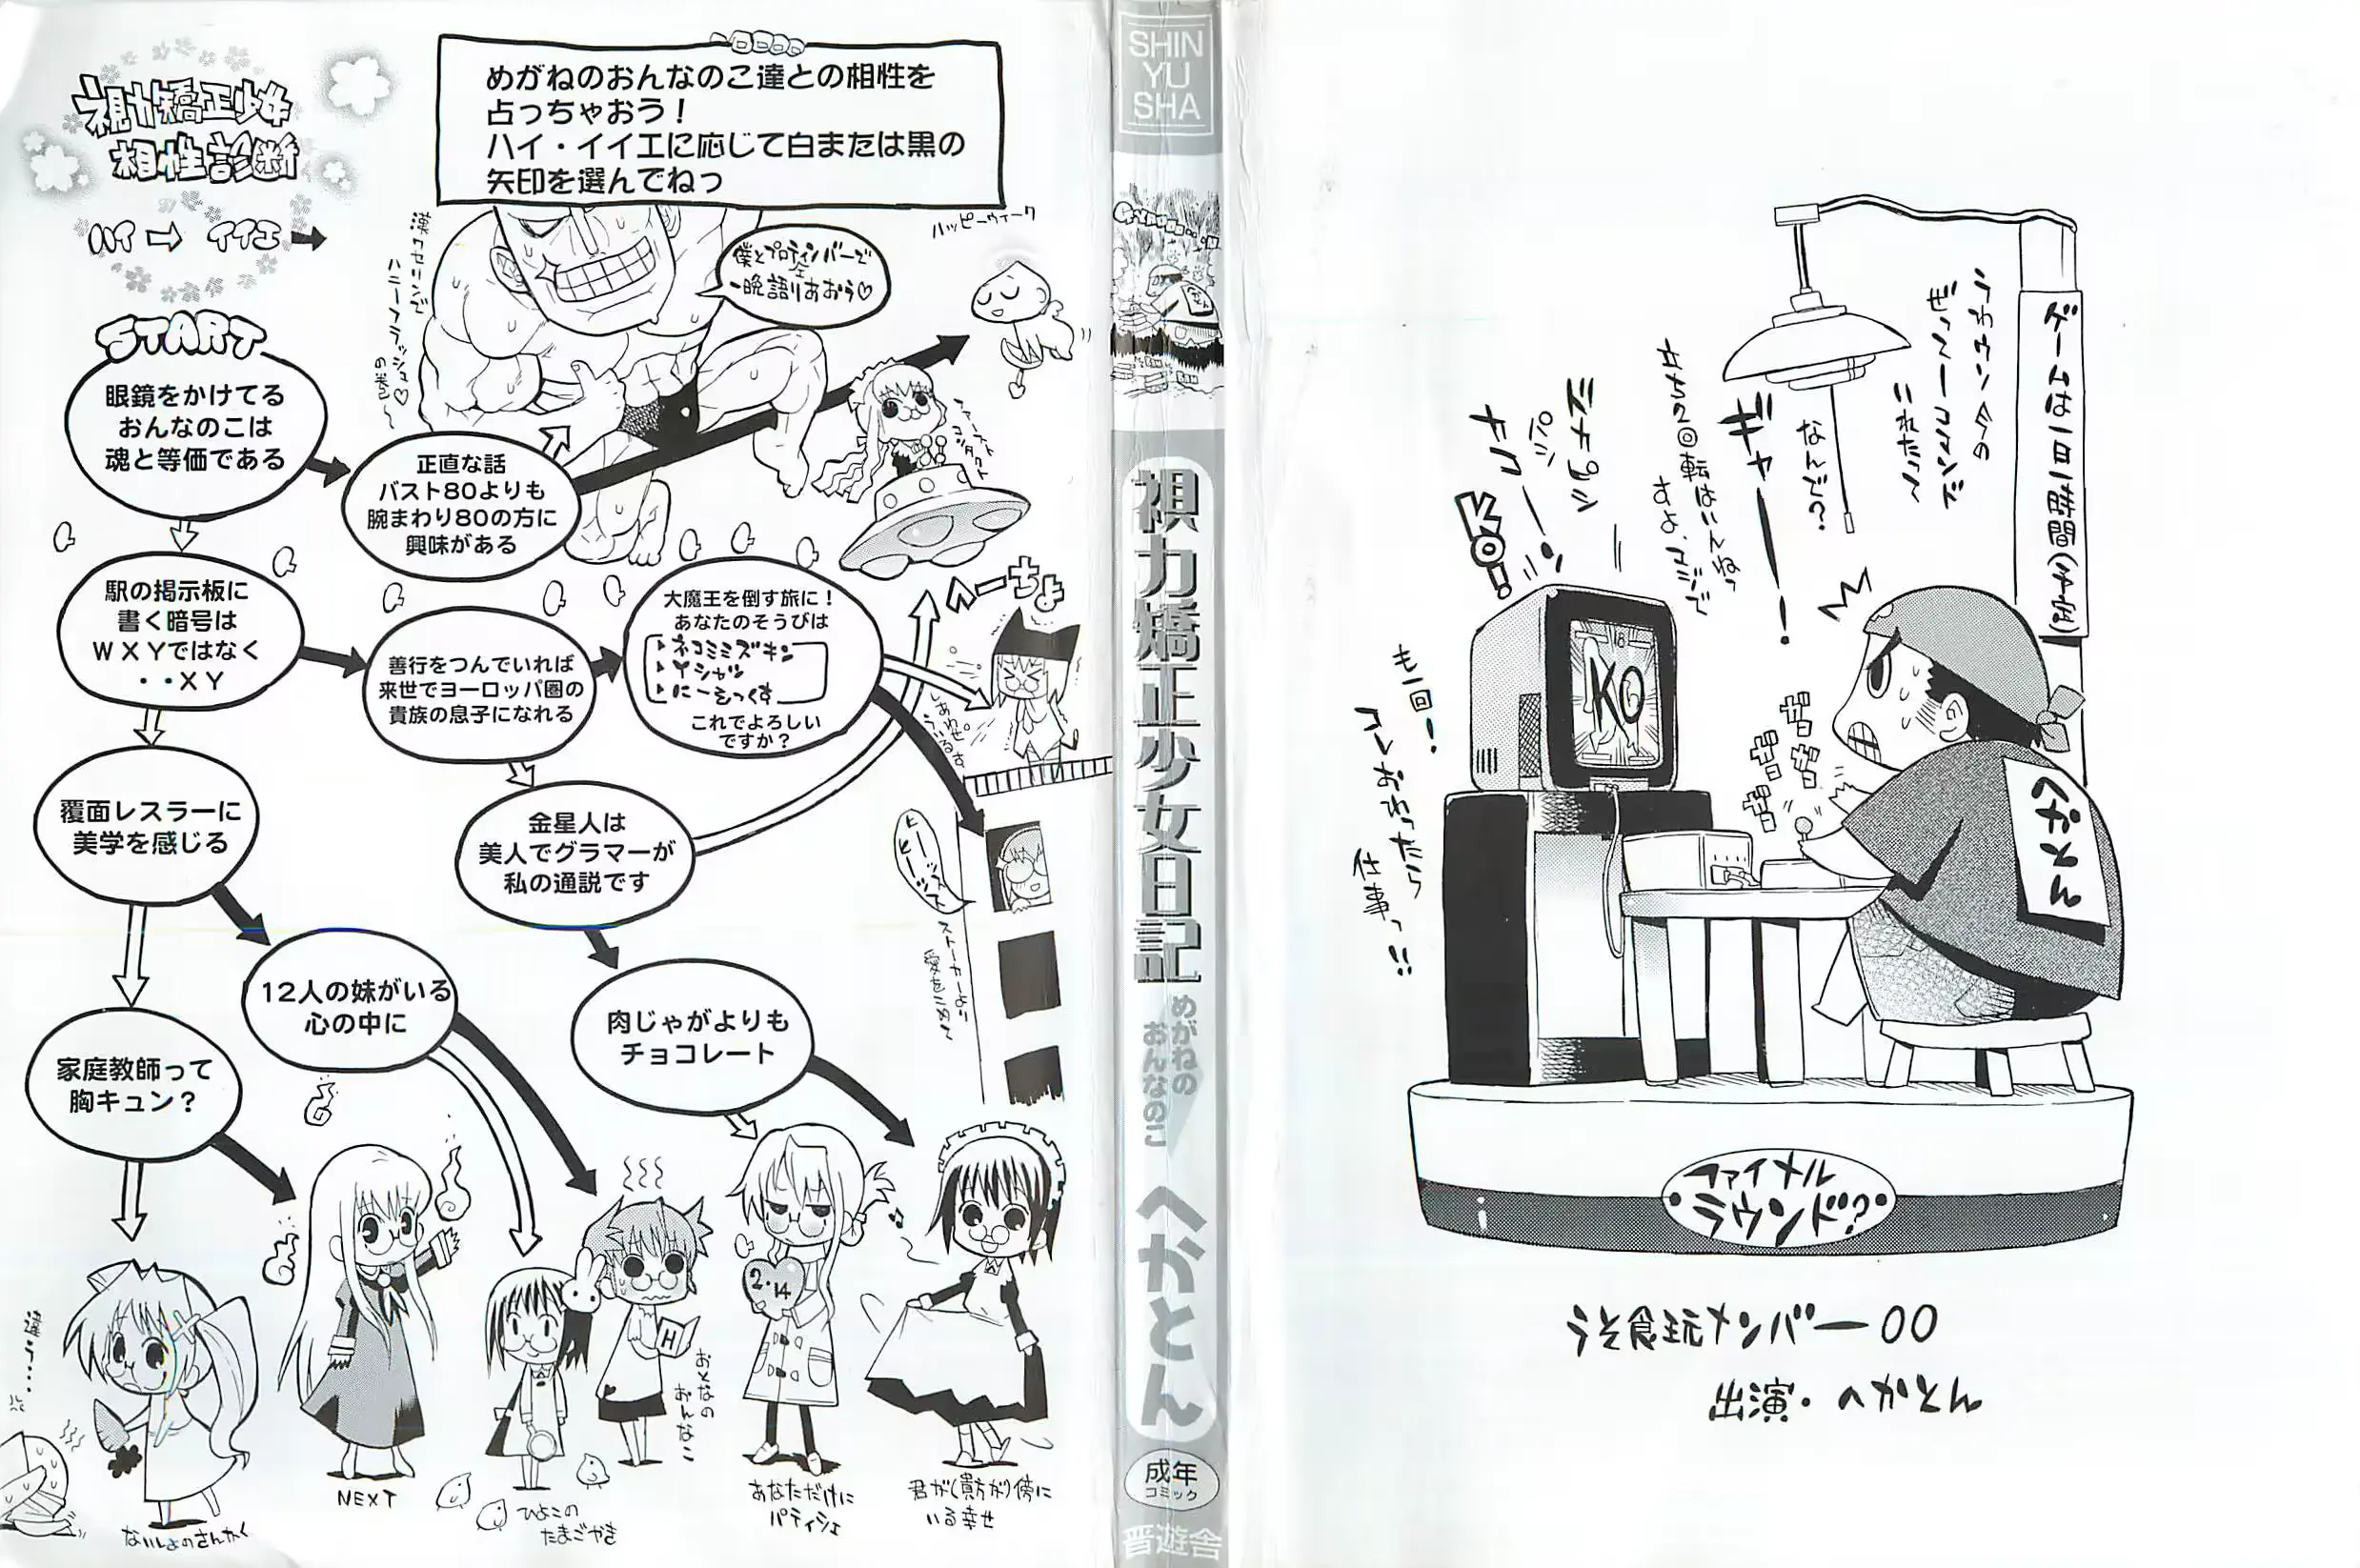 視力矯正少女
相性診断
ハイ イイエ
めがねのおんなのこ達との相性を
占っちゃおう！
ハイ・イイエに応じて白または黒の
矢印を選んでねっ
START
眼鏡をかけてる
おんなのこは
魂と等価である
正直な話
バスト80よりも
腕まわり80の方に
興味がある
漢カセリンで
ハニーフラッシュ♡
の巻き〜
僕とプロティンバーで
一晩語りあおう♡
ハッピーウィーク
ファースト
コンタクト
駅の掲示板に
書く暗号は
WXYではなく
・・XY
善行をつんでいれば
来世でヨーロッパ圏の
貴族の息子になれる
大魔王を倒す旅に！
あなたのそうびは
ネコミミズキン
Yシャツ
にーそっくす
これでよろしい
ですか？
へーちょ
覆面レスラーに
美学を感じる
金星人は
美人でグラマーが
私の通説です
ストーカーより
愛をこめて
12人の妹がいる
心の中に
肉じゃがよりも
チョコレート
家庭教師って
胸キュン？
違う・・・・
ないしょのさんかく
NEXT
ひよこの
たまごやき
H
おとなの
おんなのこ
2・14
あなただけに
パティシェ
君が(貴方が)傍に
いる幸せ
SHIN
YU
SHA
視力矯正少女日記
めがねの
おんなのこ
へかとん
成年
コミック
晋遊舎
ゲームは一日一時間(予定)
うわウソ今の
ぜってーコマンド
いれたって
なんで?
ギャーーー!
立ち2回転はいんねー
すよ、マジで
ドカ ピシ
バシ
ナコーー!
KO!
KO
も一回!
コレおわったら
仕事っ!!
へかとん
ファイナル
ラウンド?
うそ食玩メンバー00
出演・へかとん